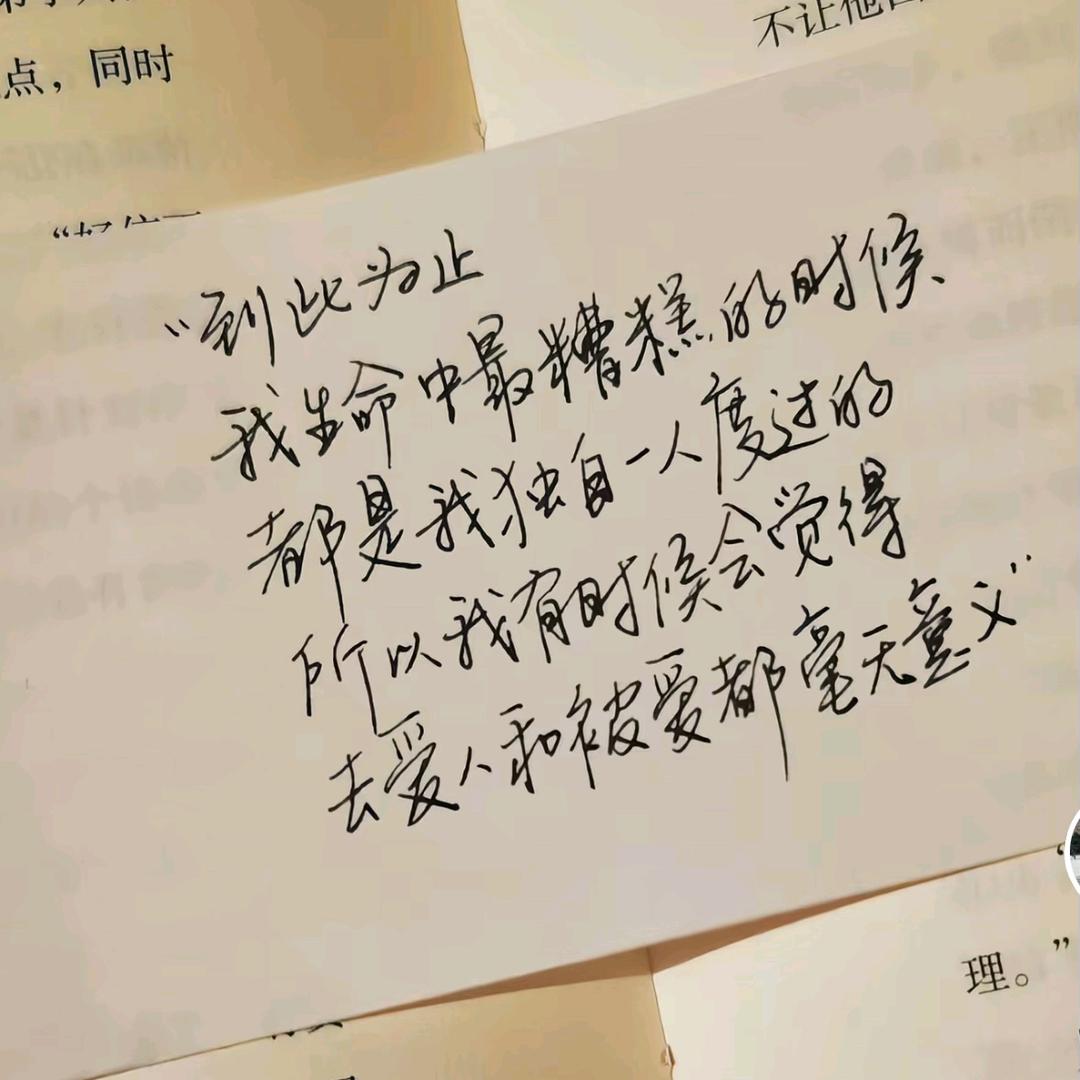 点，同时
不让他
“到此为止
我生命中最糟糕的时候、
都是我独自一人度过的
所以我有时候会觉得
去爱人和被爱都毫无意义”
理。”